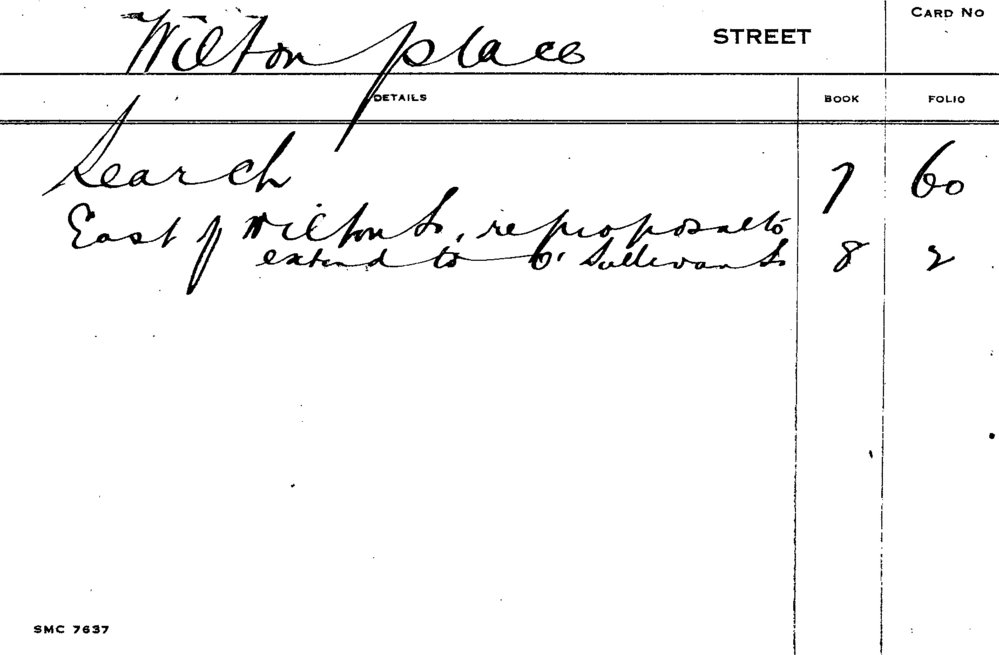 Wilton place STREET CARD NO
DETAILS BOOK FOLIO
Search 7 60
East of Wilton St, re proposal to
extend to O'Sullivan St 8 2
SMC 7637